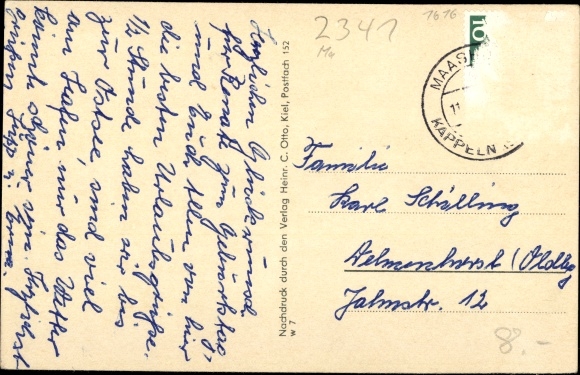 Herzlichen Glückwunsch
für Renate zum Geburtstag,
und Euch allen von hier
die besten Urlaubsgrüße.
1/2 Stunde haben wir bis
zur Ostsee, sind viel
am Hafen, nur das Wetter
könnte schöner sein. Herzlichst
Nachdruck durch den Verlag Heinr. C. Otto, Kiel, Postfach 152
w 7
2341
1616
10
MAAS
KAPPELN
Familie
Karl Schilling
Delmenhorst (Oldbg
Jahnstr. 12
8.-